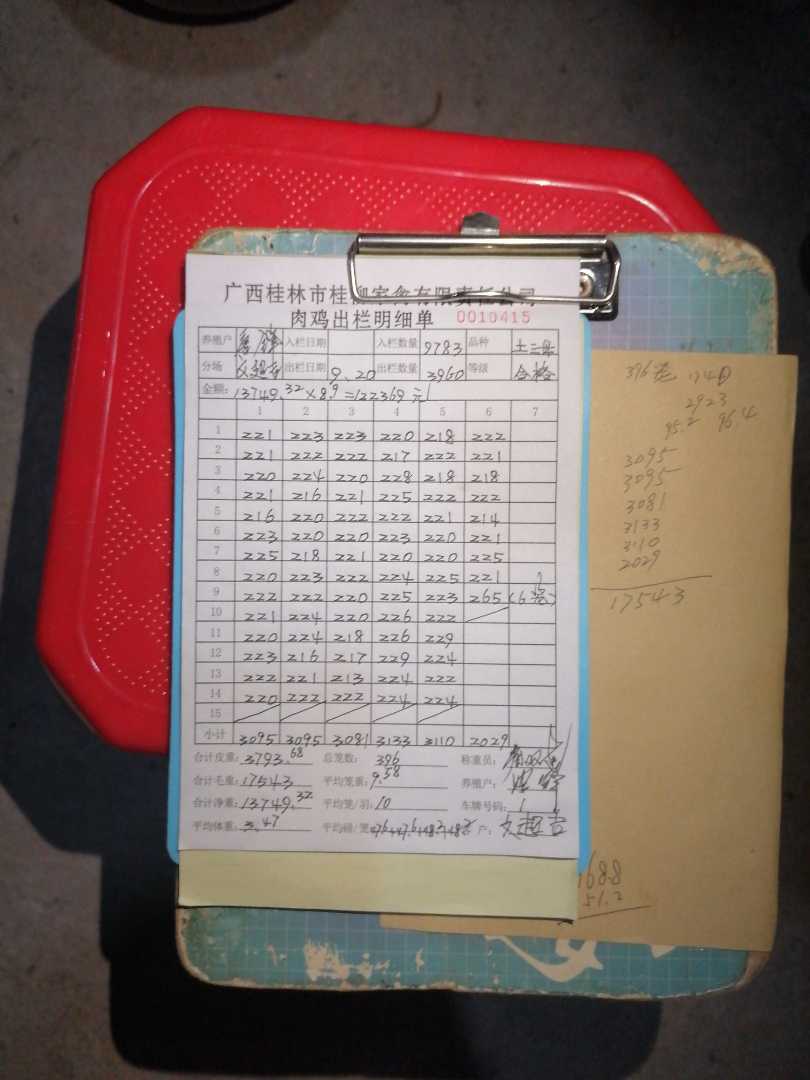 广西桂林市桂柳家禽有限责任公司
肉鸡出栏明细单 0010415
养殖户 入栏日期 入栏数量 9783 品种 土二
分场 出栏日期 9、20 出栏数量 3960 等级 合格
金额: 13749.32×8.9=122369元
1 2 3 4 5 6 7
1 221 223 223 220 218 222
2 221 222 222 217 222 221
3 220 224 220 228 218 218
4 221 216 221 225 222 222
5 216 220 222 222 221 214
6 223 220 220 223 220 221
7 225 218 221 220 220 225
8 220 223 222 224 225 221
9 222 222 220 225 223 265 (6笼)
10 221 224 220 226 222
11 220 224 218 226 229
12 223 216 217 229 224
13 222 221 213 224 222
14 220 222 222 224 224
15
小计 3095 3095 3081 3133 3110 2029
合计皮重: 3793.68 总笼数: 396 称重员:
合计毛重: 17543 平均笼重: 9.58 养殖户:
合计净重: 13749.32 平均笼/羽: 10 车牌号码:
平均体重: 3.47 平均磅/笼 户:
396笼 174日
2923
95.2 96.4
3095
3095
3081
3133
3110
2029
17543
1688
51.2